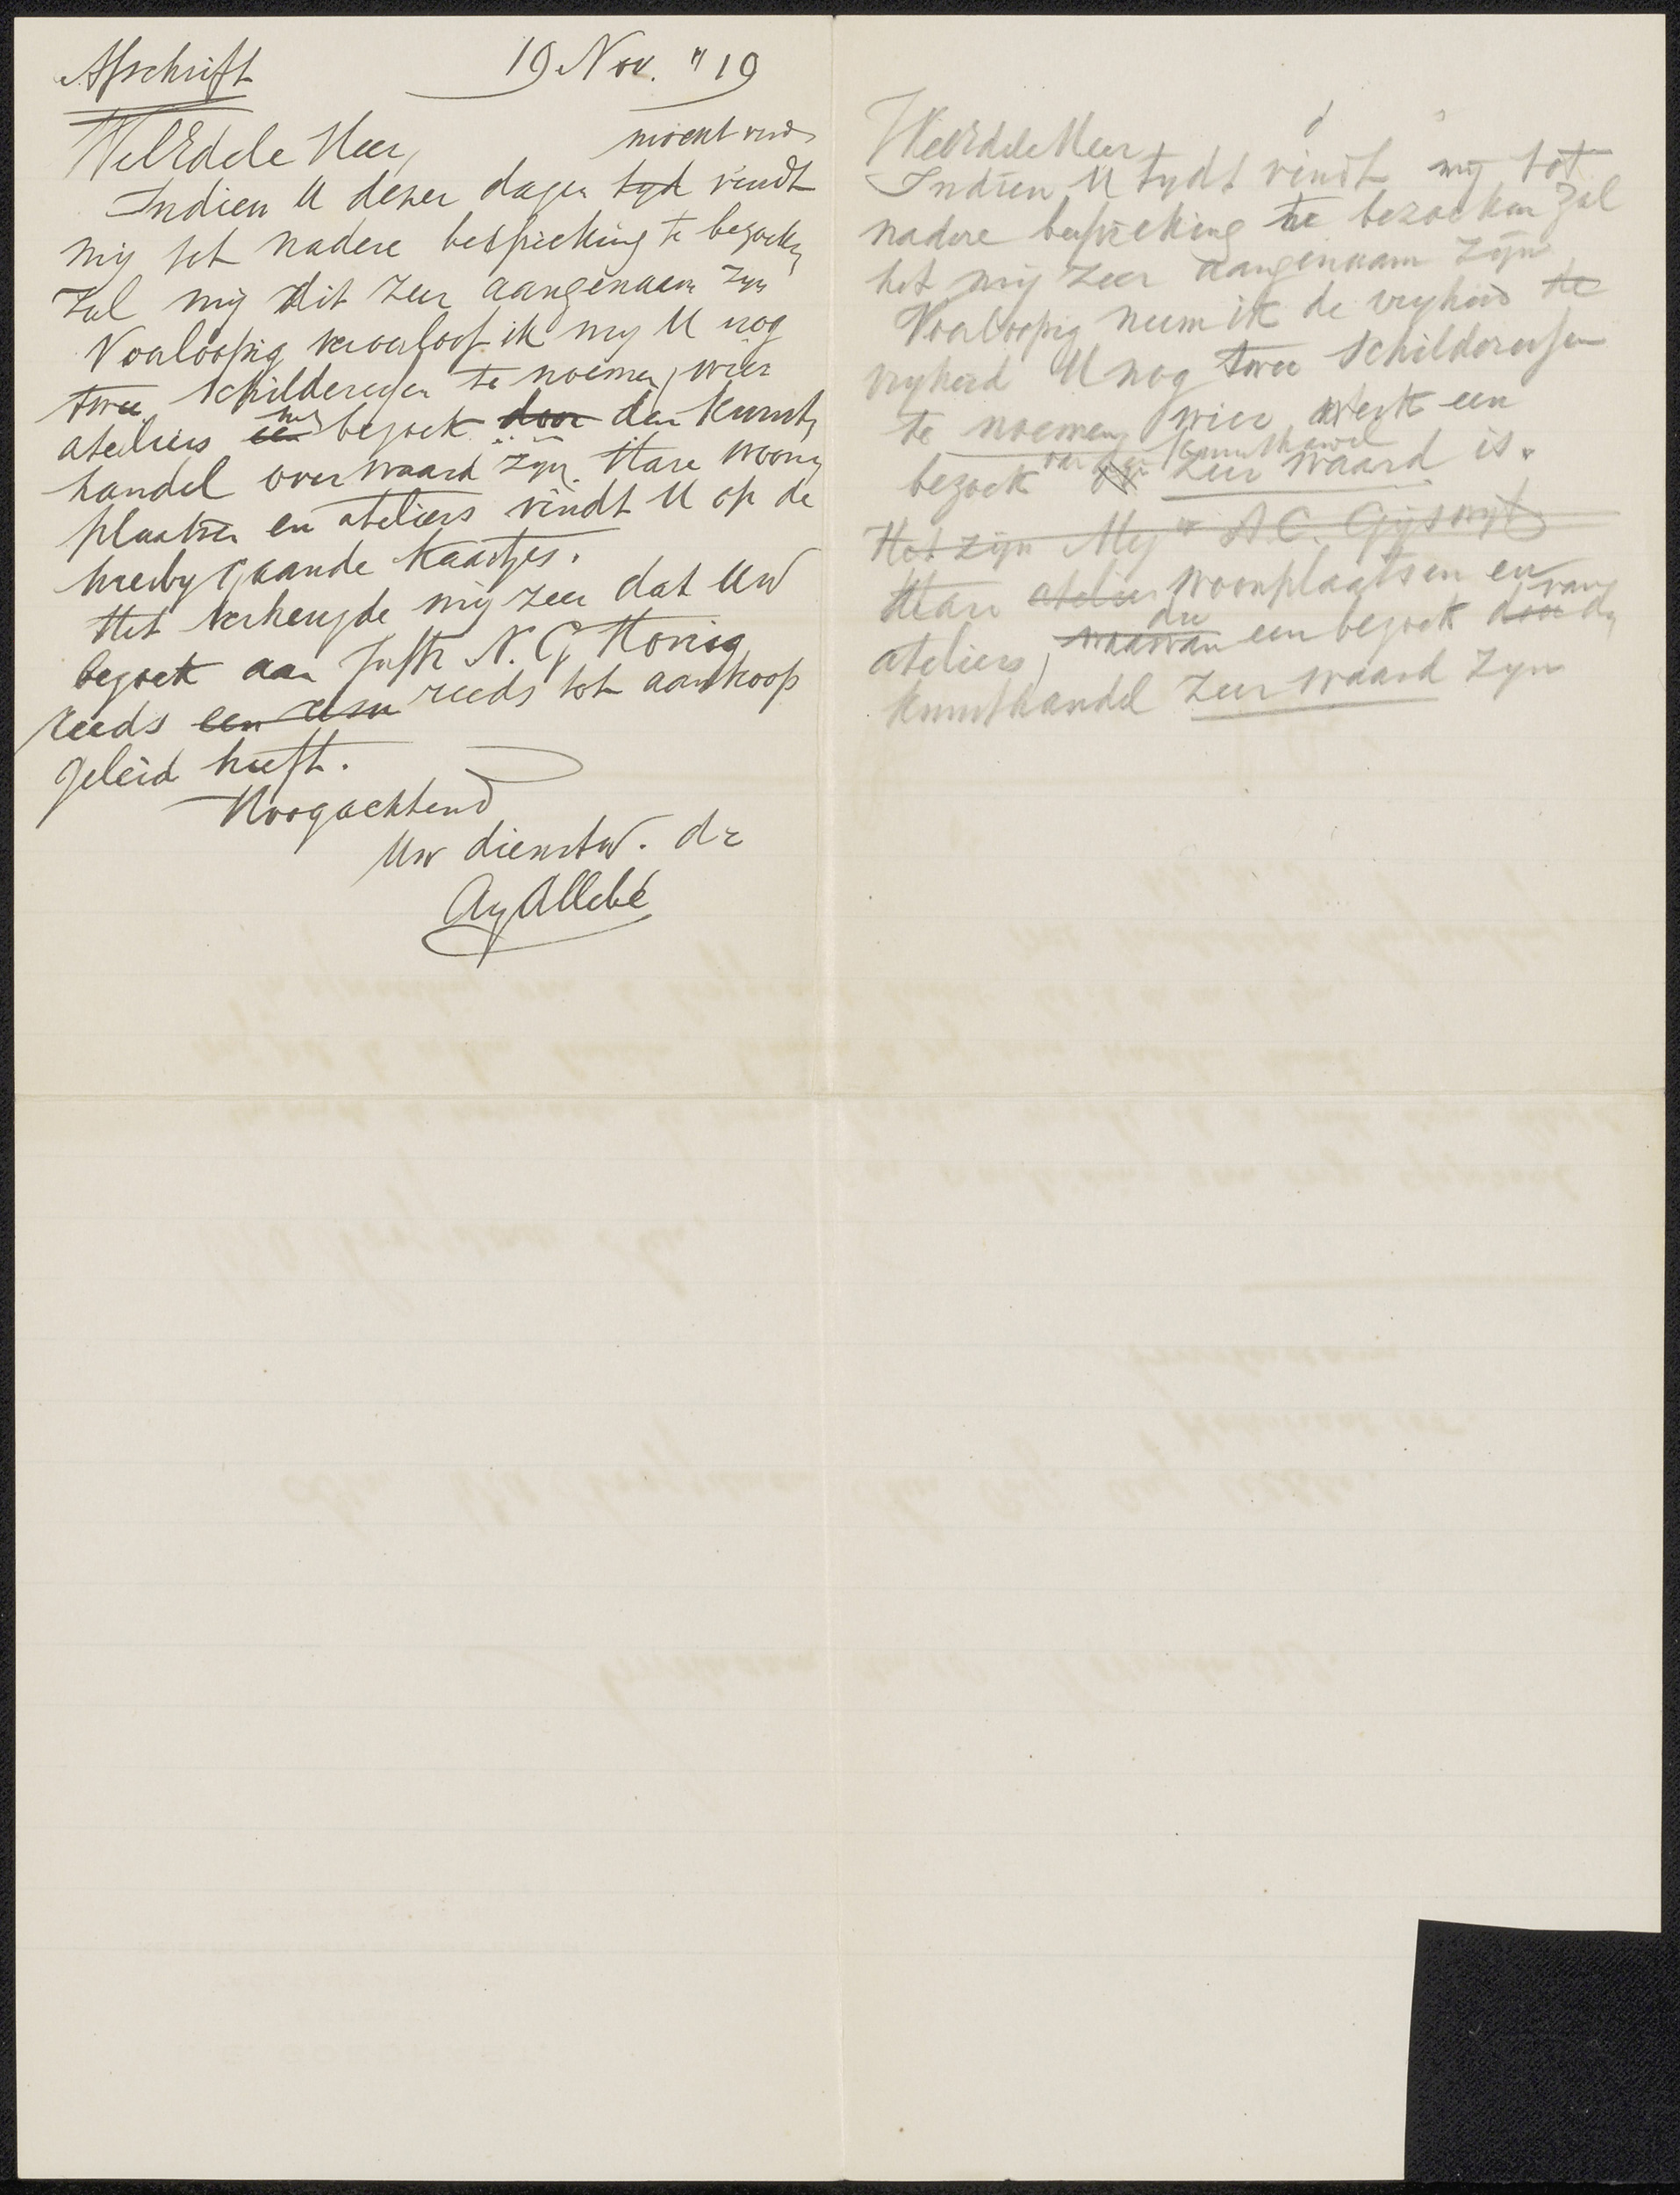 Afschrift 19 Nov. "19
WelEdele Heer,
Indien U dezer dagen tyd vindt
mij tot nadere bespreking te bezoeken
zal mij dit zeer aangenaam zyn
Voorloopig veroorloof ik my U nog
twee schilderessen te noemen, wier
ateliers een het bezoek door den Kunst,
handel overwaard zyn. Hare woon,
plaatsen en ateliers vindt U op de
hierbygaande kaartjes.
Het verheugde mij zeer dat Uw
bezoek aan Juffr N. G Konig
reeds een reeds tot aankoop
geleid heeft.
Hoogachtend
Uw dienstw. dr
Aug Allebé
WelEdele Heer
Indien U tydt vindt mij tot
nadere bespreking te bezoeken zal
het mij zeer aangenaam zijn
Voorloopig neem ik de vryheid te
vryheid U nog twee schilderessen
te noemen, wier werk een
bezoek van den Kunsthandel zeer waard is.
Het zijn Mejr A.C. Gijswijt
Hare atelier woonplaatsen en
ateliers, waarvan die een bezoek door van den
Kunsthandel zeer waard zyn